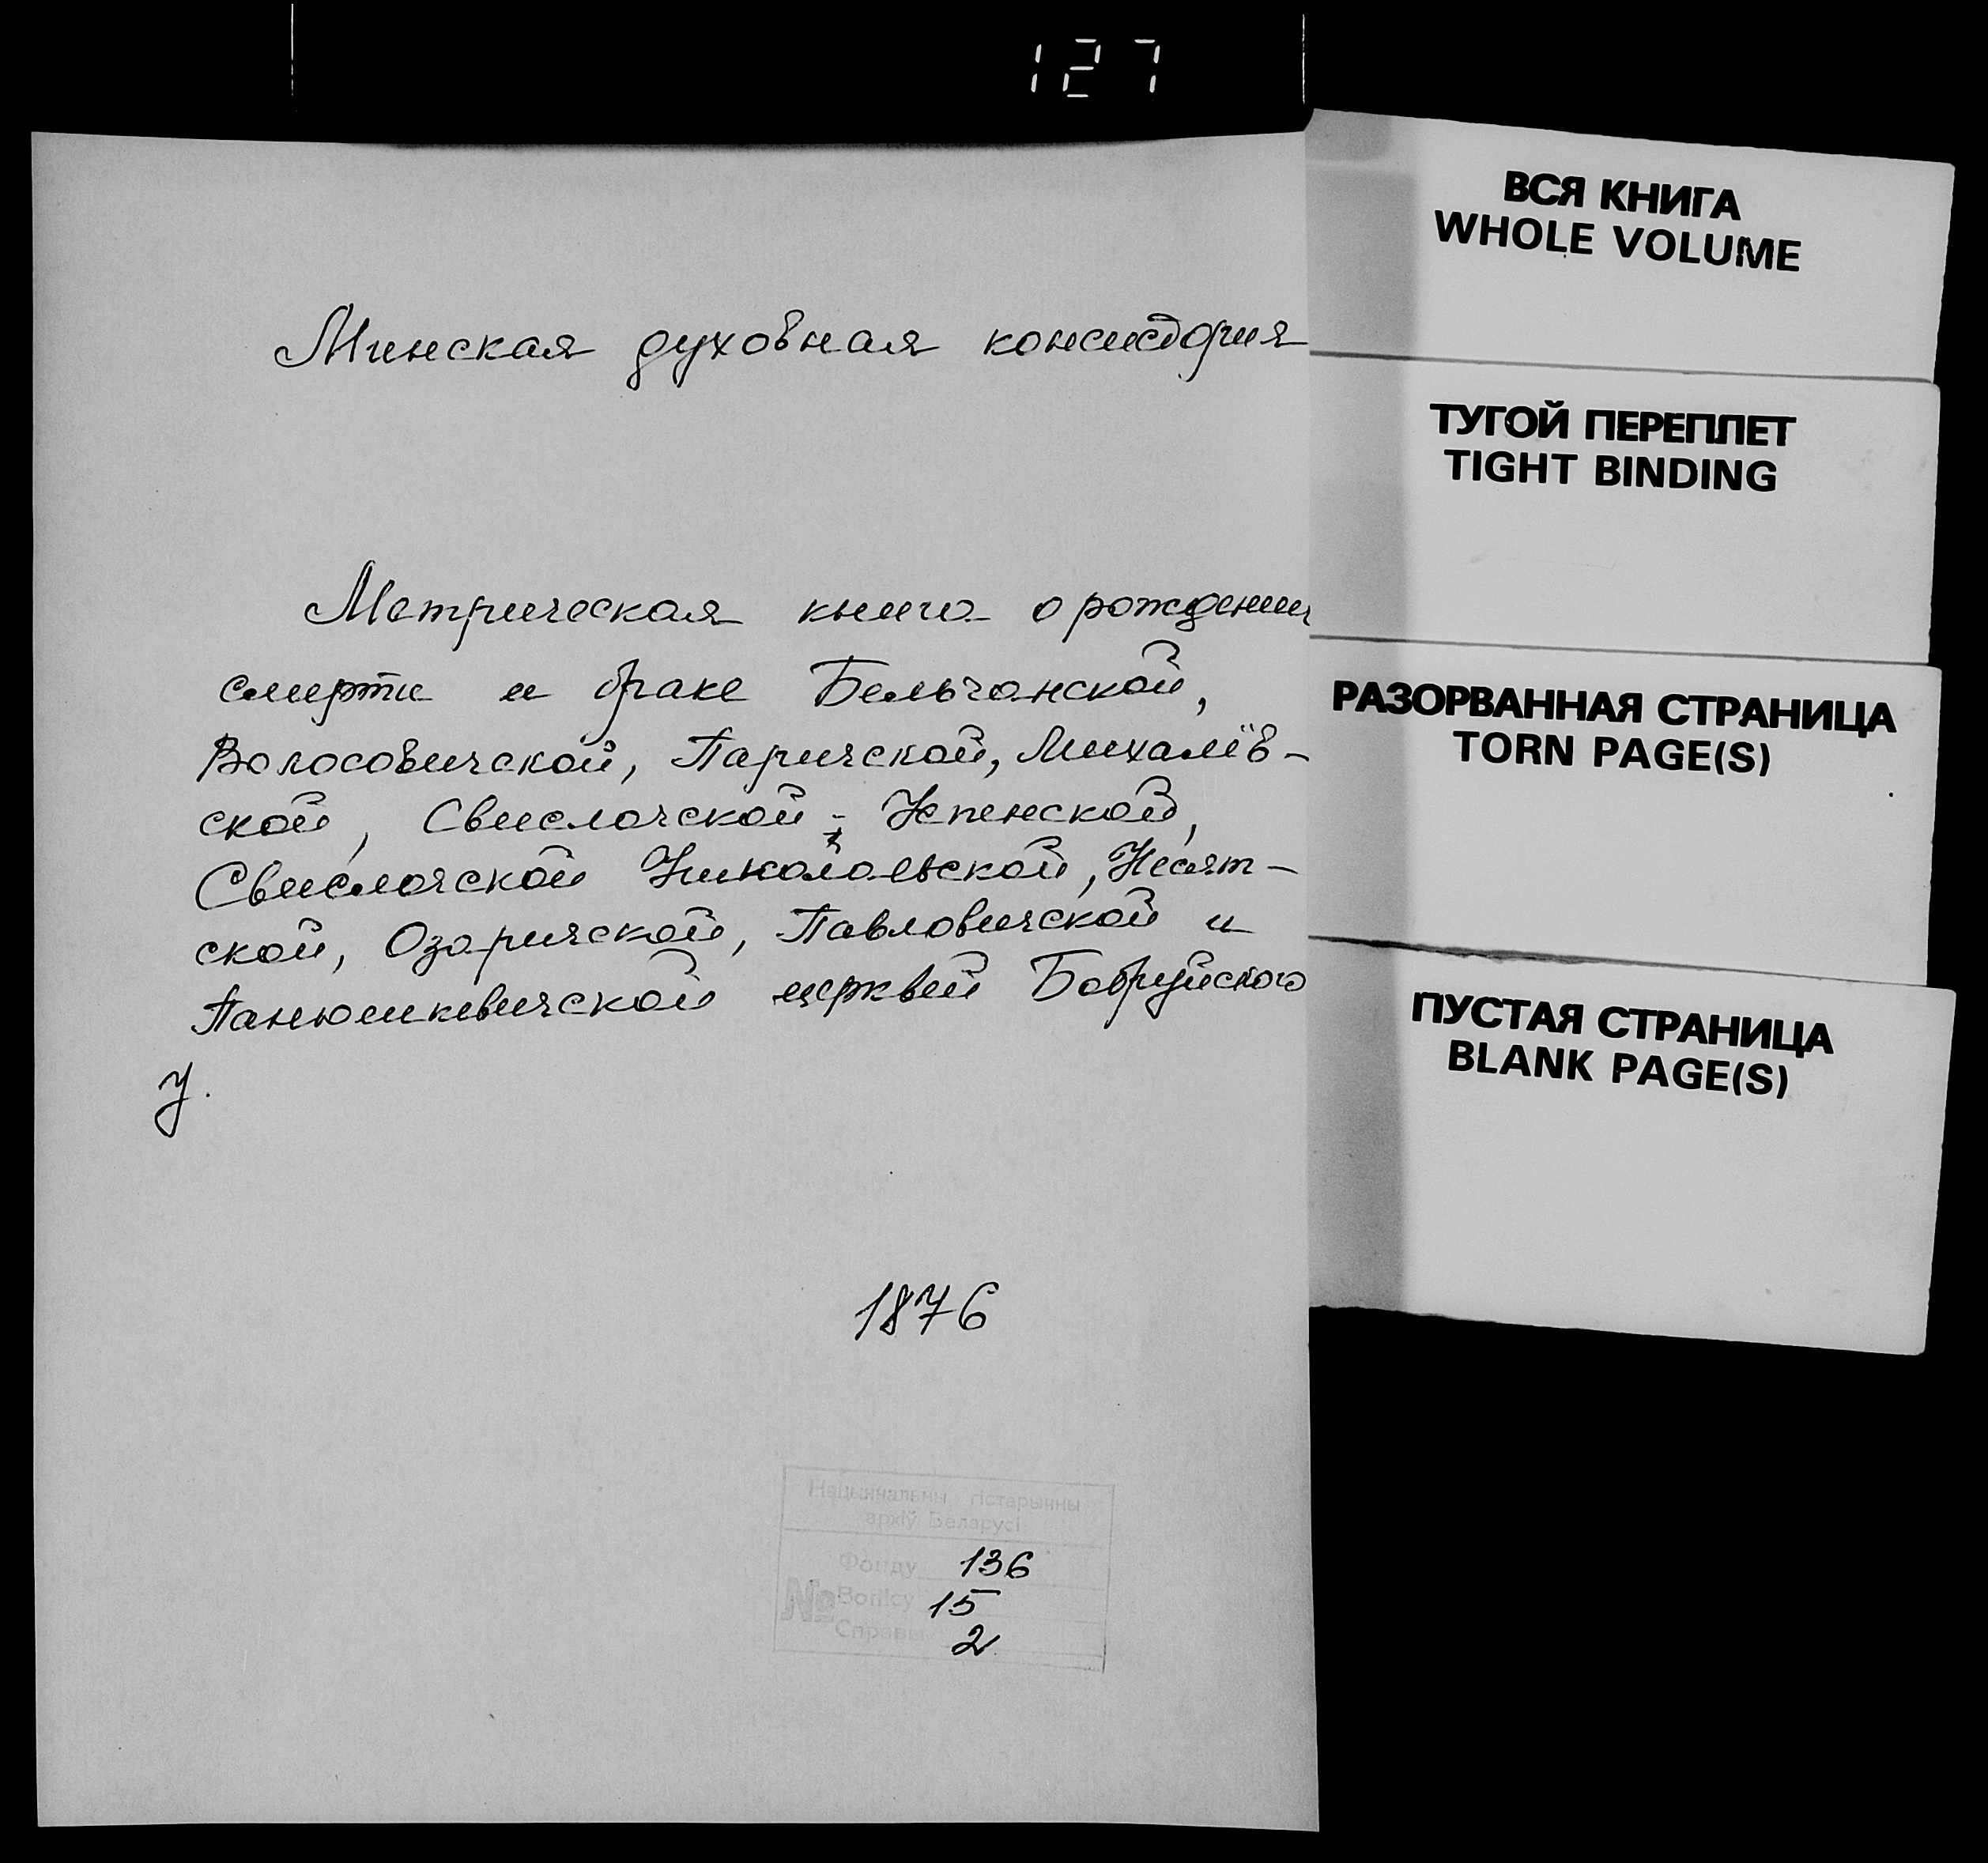 127
Минская духовная консистория
Метрическая книга о рождении
смерти и браке Бельчанской,
Волосовичской, Паричской, Михалёв-
ской, Свислочской - Успенской,
Свислочской Николаевской, Несят-
ской, Озаричской, Павловичской и
Панюшкевичской церквей Бобруйского
у.
1876
Нацыянальны гістарычны
архіў Беларусі
Фонду 136
№ Вопісу 15
Справы 2
ВСЯ КНИГА
WHOLE VOLUME
ТУГОЙ ПЕРЕПЛЕТ
TIGHT BINDING
РАЗОРВАННАЯ СТРАНИЦА
TORN PAGE(S)
ПУСТАЯ СТРАНИЦА
BLANK PAGE(S)